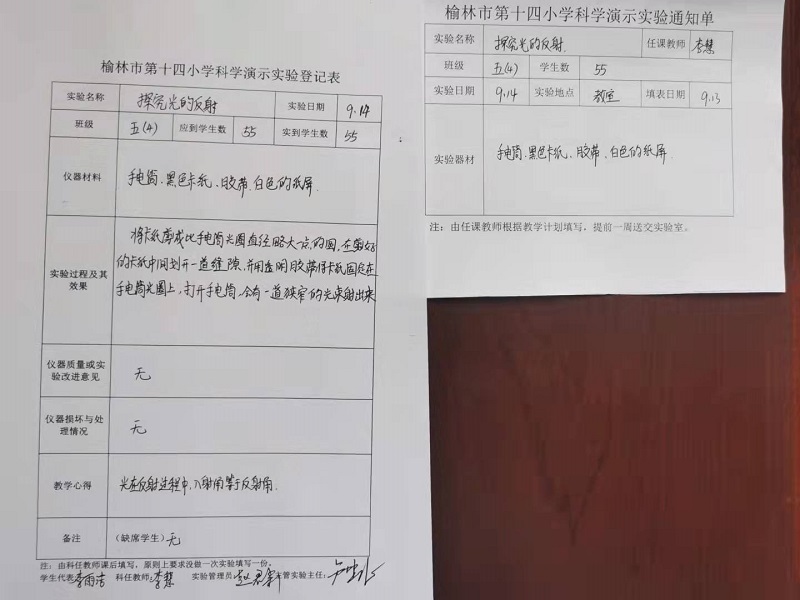 榆林市第十四小学科学演示实验登记表
实验名称 探究光的反射 实验日期 9.14
班级 五(4) 应到学生数 55 实到学生数 55
仪器材料 手电筒、黑色卡纸、胶带、白色的纸屏
实验过程及其效果
将卡纸剪成比手电筒光圈直径略大一点的圆,在剪好
的卡纸中间划开一道缝隙,并用透明胶带将卡纸固定在
手电筒光圈上,打开手电筒,会有一道狭窄的光束射出来
仪器质量或实验改进意见 无
仪器损坏与处理情况 无
教学心得 光在反射过程中,入射角等于反射角.
备注 (缺席学生)无
注:由科任教师课后填写,原则上要求没做一次实验填写一份。
学生代表:李雨洁 科任教师:李慧 实验管理员: 主管实验主任:
榆林市第十四小学科学演示实验通知单
实验名称 探究光的反射. 任课教师 李慧
班级 五(4) 学生数 55
实验日期 9.14 实验地点 教室 填表日期 9.13
实验器材 手电筒、黑色卡纸、胶带、白色的纸屏.
注:由任课教师根据教学计划填写,提前一周送交实验室。